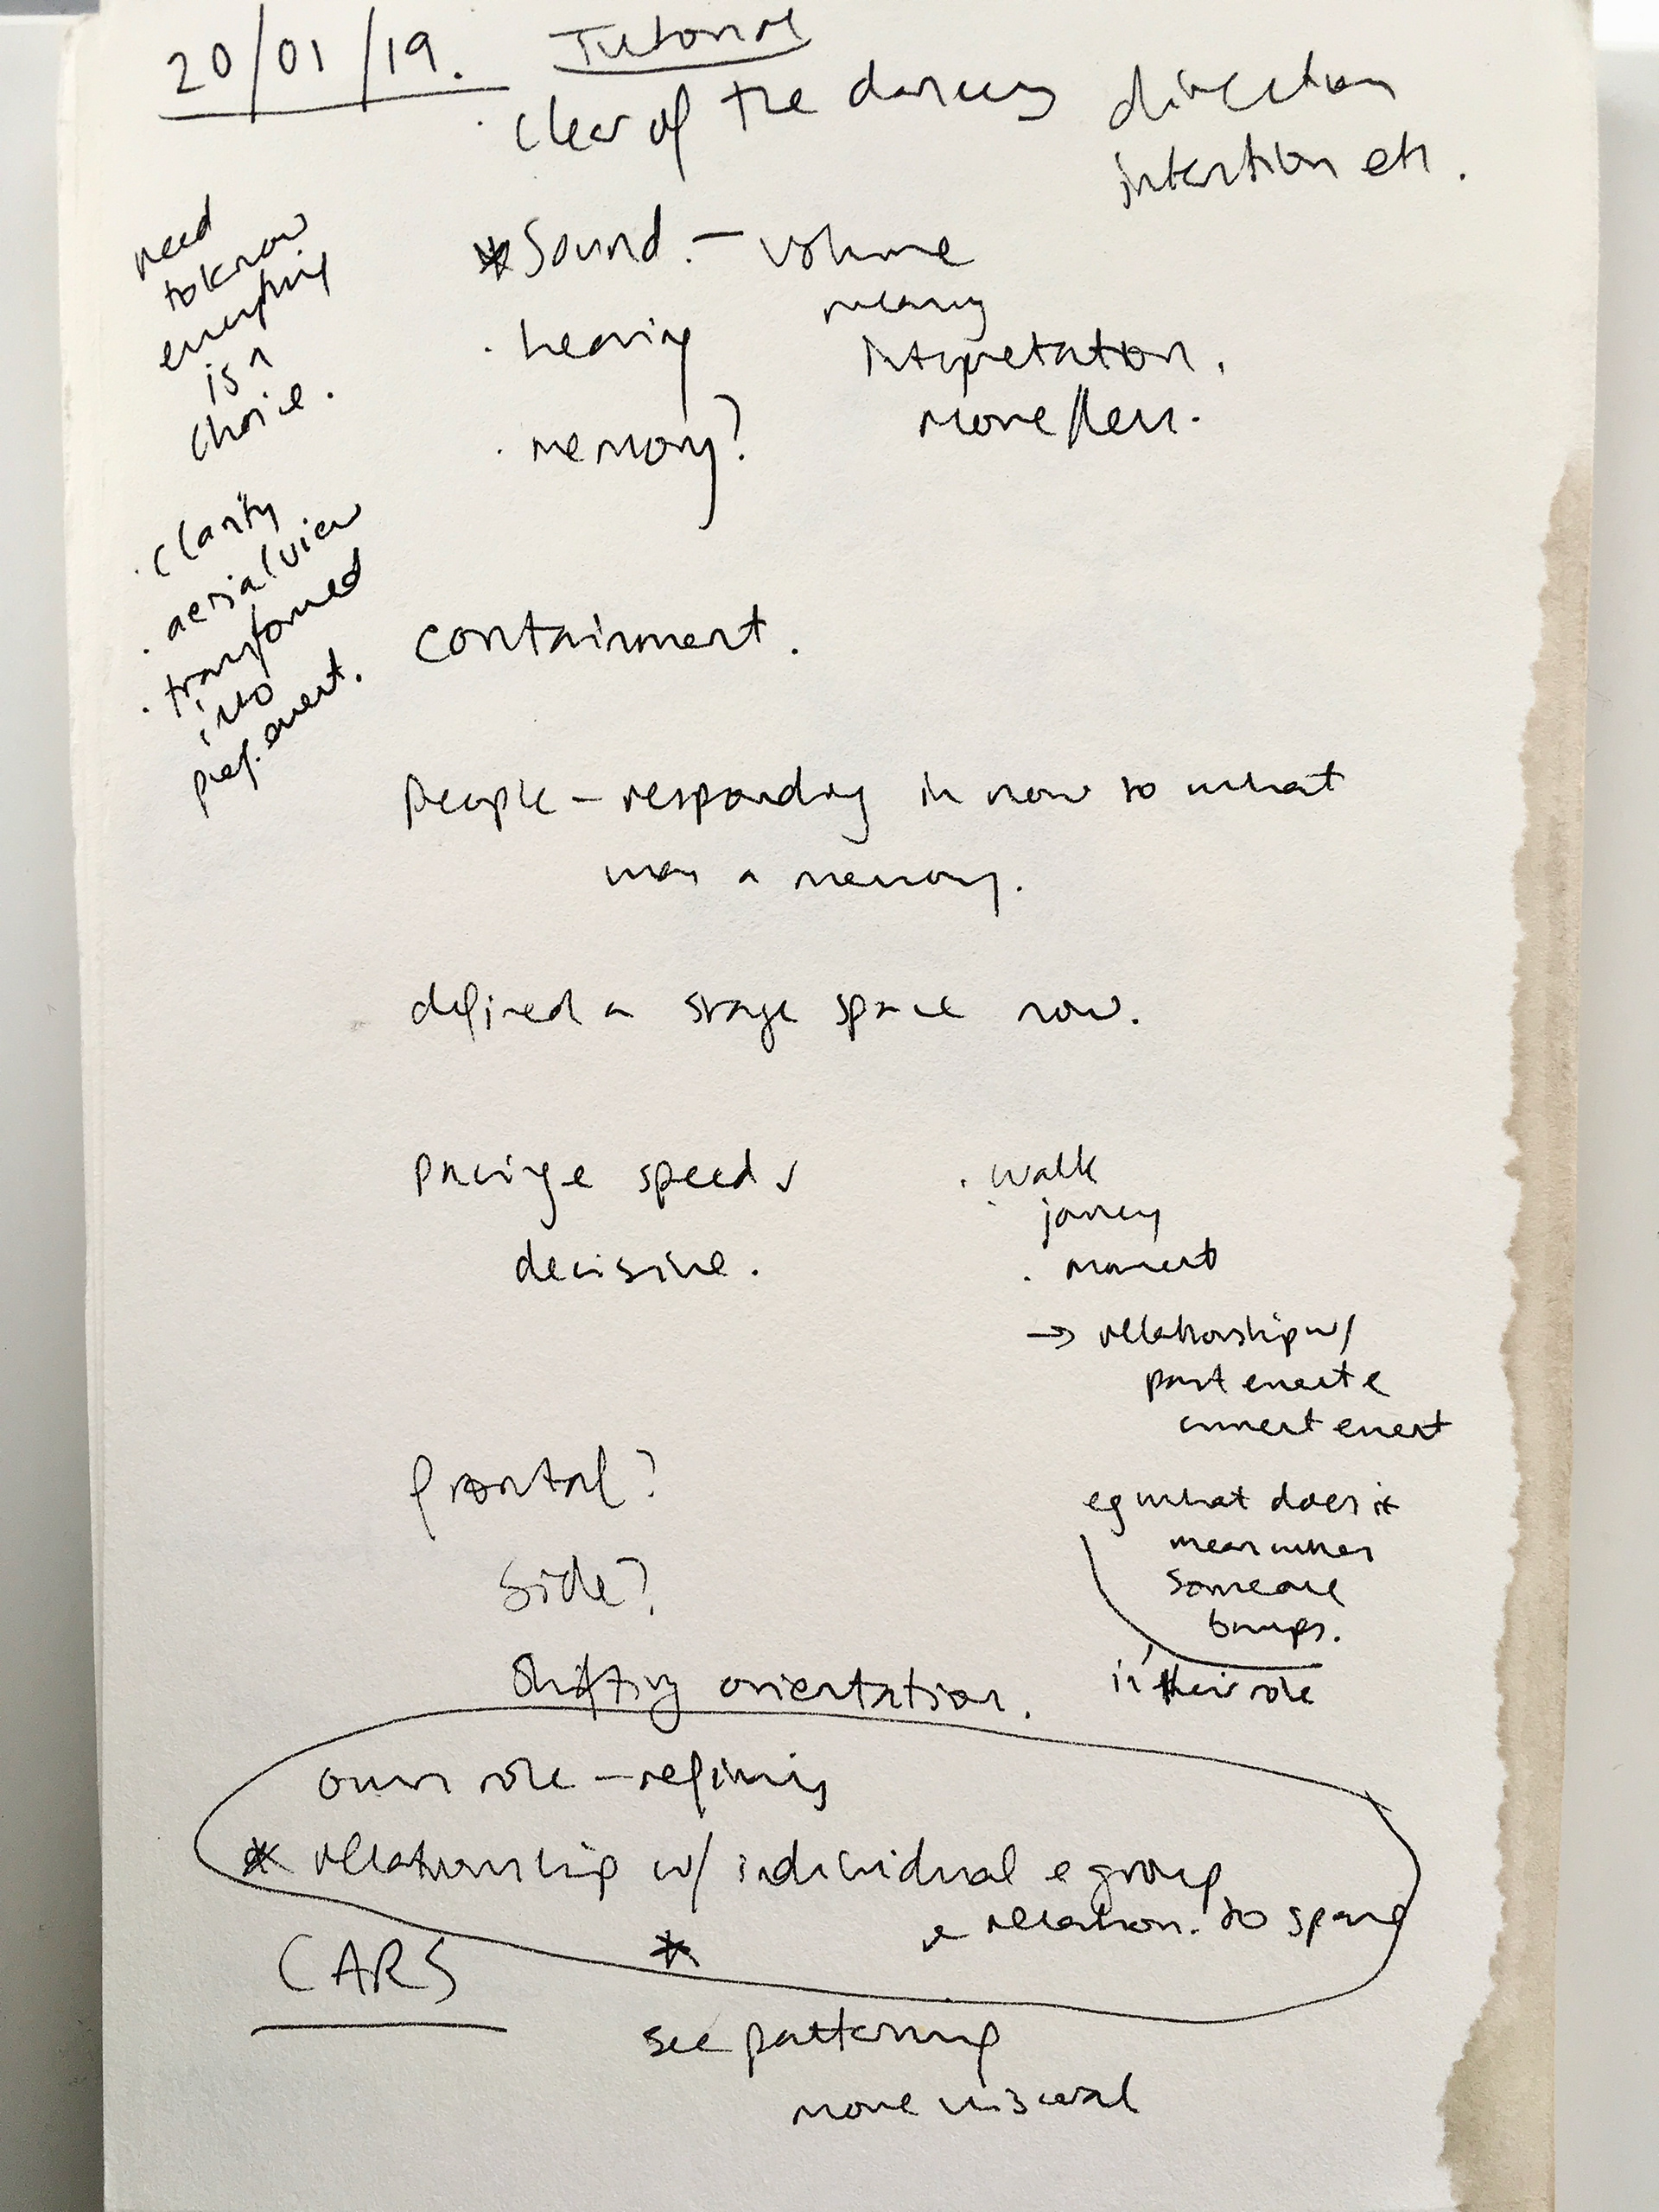 20/01/19. Tutorial
· clear of the dancers direction
intention etc.
need
to know
everything
is a
choice.
* Sound. – volume
meaning
· hearing interpretation.
more/less.
· memory?
· clarity
· aerial view
· transformed
into
perf. event.
containment.
People – responding in now to what
was a memory.
defined a stage space now.
pacing e speed
decisive.
· walk
· journey
· moment
→ relationship w/
past event e
current event
eg what does it
mean when
someone
bumps.
is their role
frontal?
side?
shifting orientation.
own role – refining
* relationship w/ individual e group
e relation. to space
*
CARS
see patterning
more visual